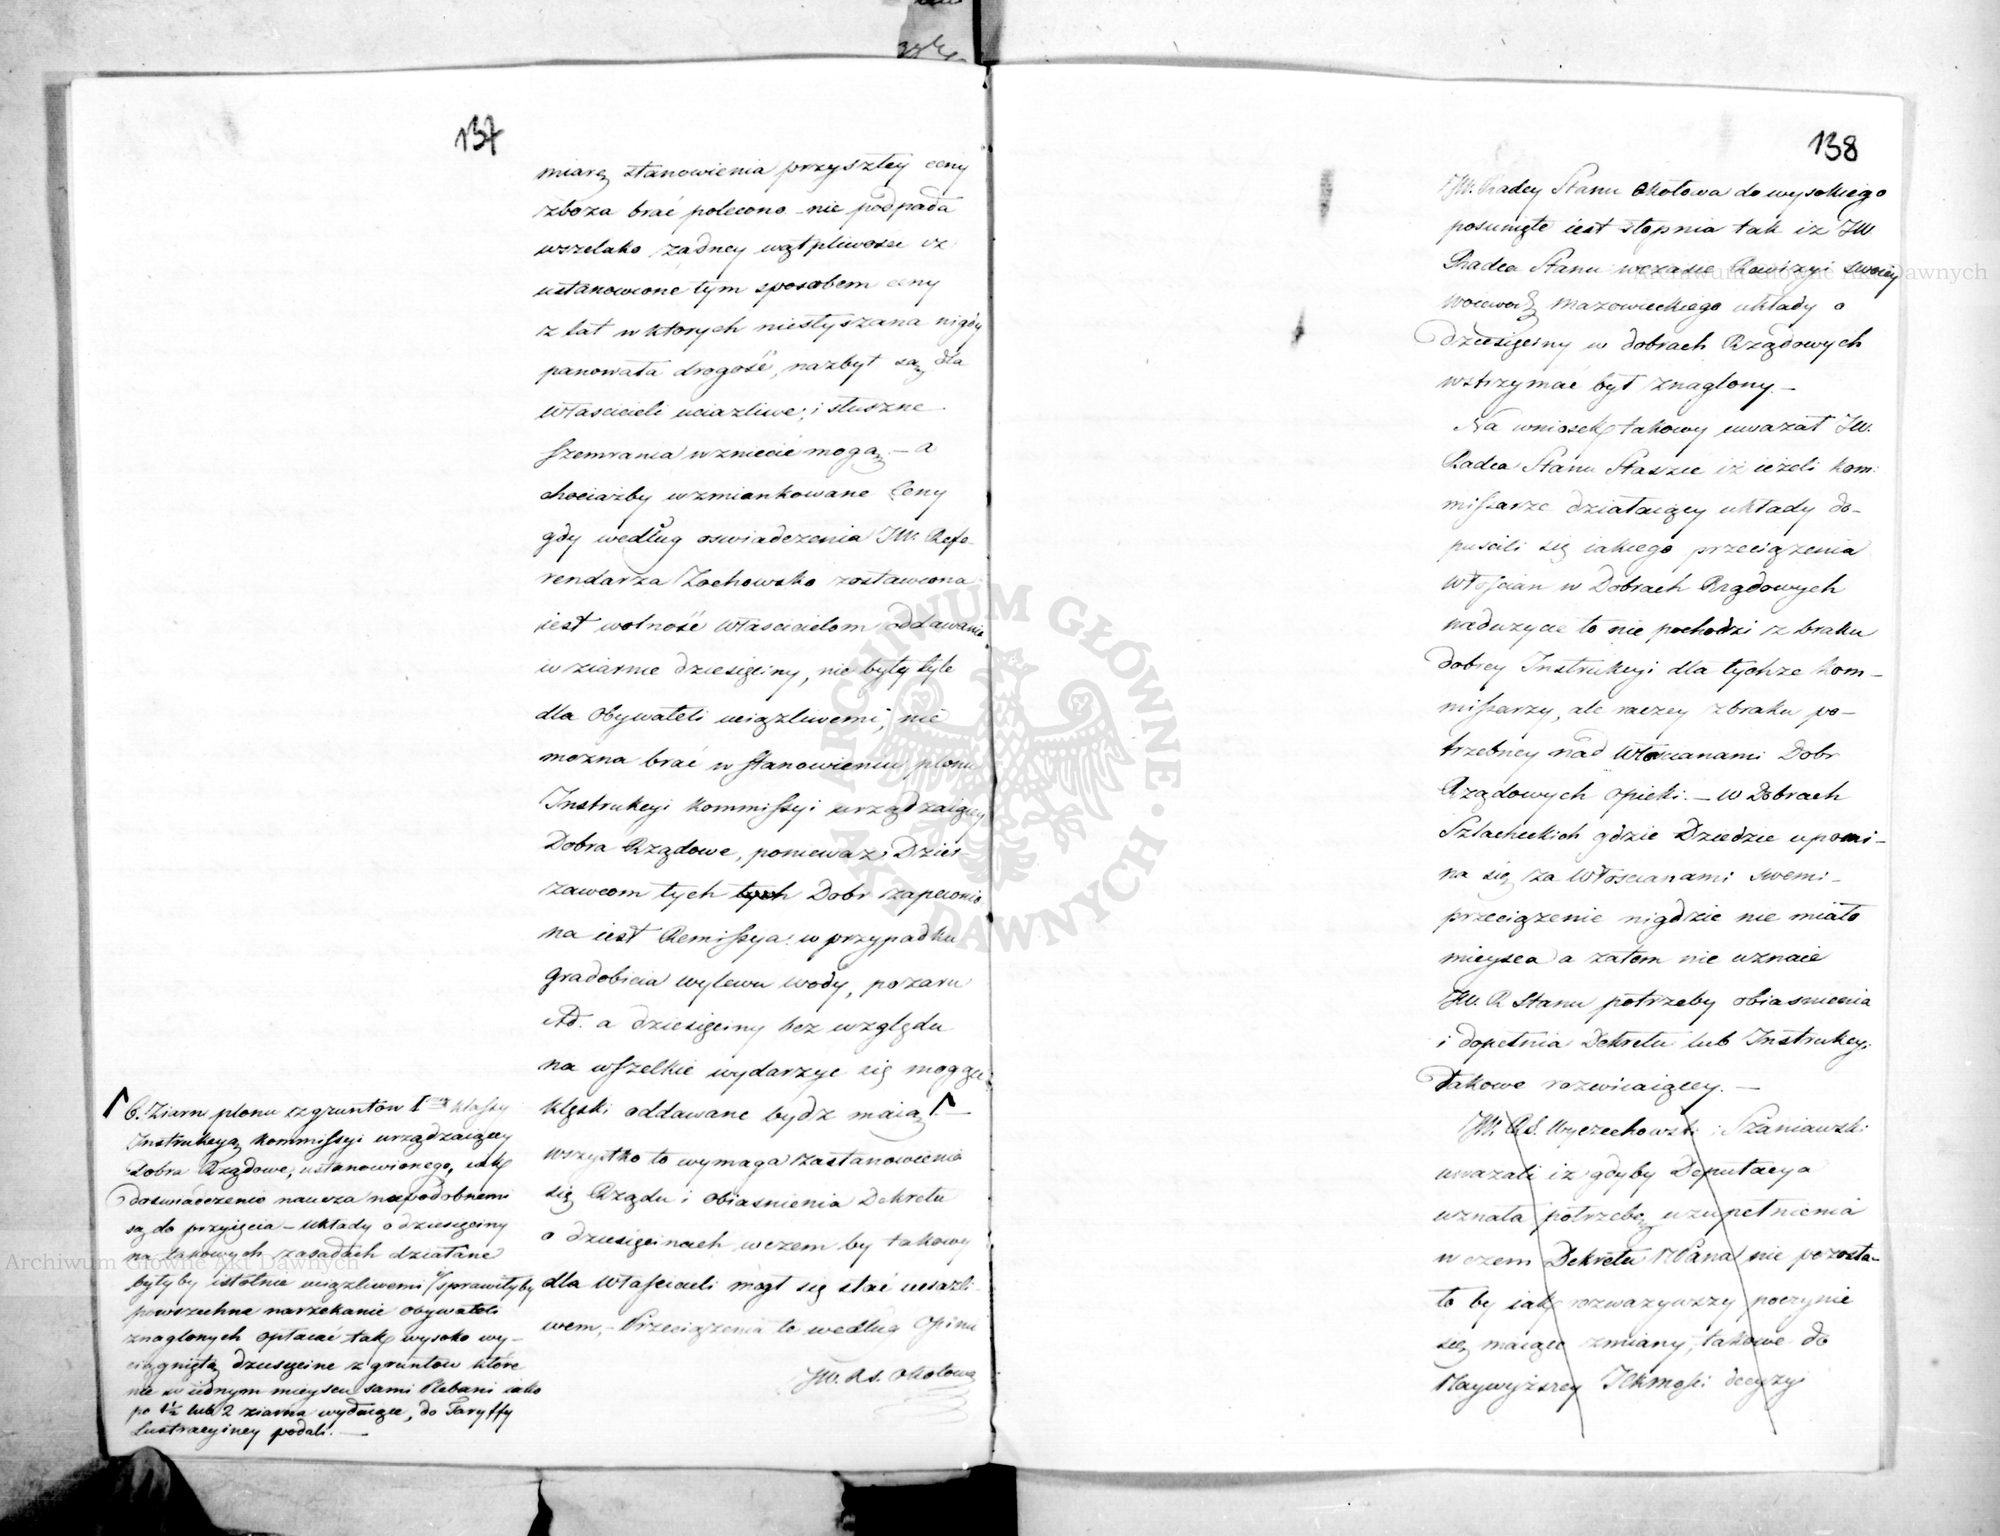 137
miarę stanowienia przyszłey ceny
zboża brać polecono nie podpada
wszelako żadney wątpliwości że
ustanowione tym sposobem ceny
z lat w ktorych niesłyszana nigdy
panowała drogość, nazbyt są dla
właścicieli uciążliwe, i słuszne
szemrania wzniecić mogą. — a
chociażby wzmiankowane Ceny
gdy według oswiadczenia JW. Refe-
rendarza Żochowsko zostawiona
iest wolność właścicielom oddawania
w ziarnie dziesięciny, nie były tyle
dla Obywateli uciążliwemi, nie
można brać w stanowieniu plonu
Instrukcyi Kommissyi urządzaiącey
Dobra Rządowe, ponieważ Dzier
żawcom tych tych Dobr zapewnio
na iest Remissya w przypadku
gradobicia wylewu wody, pożaru
itd. a dziesięciny bez względu
na wszelkie wydarzyć się mogące
klęski oddawane bydź maią —
wszystko to wymaga zastanowienia
się Rządu i obiasnienia Dekretu
o dziesięcinach wczem by takowy
dla Właścicieli mógł się stać uciążli-
wem, — Przeciążenia te według Opinii
JW. RS. Okołowa
6. Ziarn plonu z gruntow I klassy
Instrukcyą Kommissyi urządzaiącey
Dobra Rządowe, ustanowionego, iak
doswiadczenie naucza niepodobnemi
są do przyięcia — układy o dziesięciny
na takowych zasadach działane
byłyby istotnie uciążliwemi i sprawiłyby
powszechne narzekanie obywateli
znaglonych opłacać tak wysoko wy-
ciągniętą dziesięcinę z gruntow które
nie w iednym mieyscu sami Plebani iako
po 1½ lub 2 ziarna wydaiące, do Taryffy
Lustracyiney podali. —
138
JW. Radcy Stanu Okołowa do wysokiego
posunięte iest stopnia tak iż JW.
Radca Stanu wczasie Rewizyi swoiey
Woiewodz Mazowieckiego układy o
dziesięciny w dobrach Rządowych
wstrzymać był znaglony. —
Na wniosek takowy uważał JW.
Radca Stanu Staszic iż ieżeli Kom:
missarze działaiący układy do-
puscili się iakiego przeciążenia
Włoscian w Dobrach Rządowych
nadużycie to nie pochodzi z braku
dobrey Instrukcyi dla tychże Kom-
missarzy, ale raczey z braku po-
trzebney nad Włościanami Dobr
Rządowych opieki. — W Dobrach
Szlacheckich gdzie Dziedzic upomi-
na się za Włoscianami swemi —
przeciążenie nigdzie nie miało
mieysca a zatem nie uznaie
JW. R Stanu potrzeby obiasnienia
i dopełnia Dekretu lub Instrukcyi
Takowe rozwiiaiącey. —
JW. RS. Wyczechowski i Szaniawski
uważali iż gdyby Deputacya
uznała potrzebę uzupełnienia
w czem Dekretu Pana nie pozosta-
ło by iak rozważywszy poczynić
się maiące zmiany, takowe do
Naywyższey JKMości decyzyi
Archiwum Główne Akt Dawnych
Archiwum Główne Akt Dawnych
ARCHIWUM GŁÓWNE AKT DAWNYCH